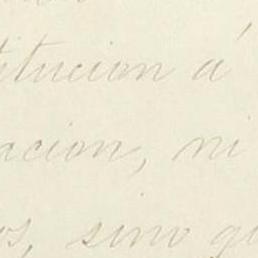 titucion á
acion, ni
os, sino qu